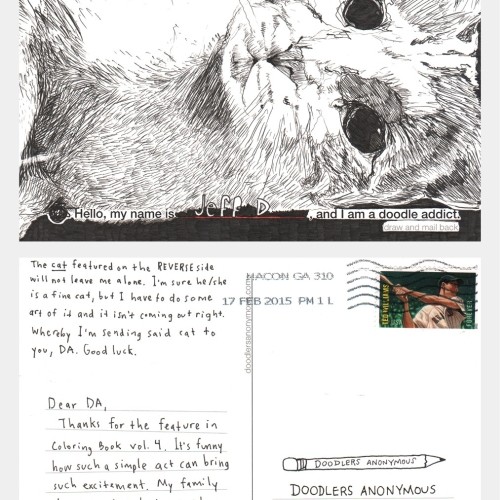 Hello, my name is Jeff D, and I am a doodle addict.
draw and mail back
The cat featured on the REVERSE side
will not leave me alone. I'm sure he/she
is a fine cat, but I have to do some
art of it and it isn't coming out right.
Whereby I'm sending said cat to
you, DA. Good luck.
Dear DA,
Thanks for the feature in
Coloring Book vol. 4. It's funny
how such a simple act can bring
such excitement. My family
doodlersanonymous.com
MACON GA 310
17 FEB 2015 PM 1 L
TED WILLIAMS
FOREVER
DOODLERS ANONYMOUS
DOODLERS ANONYMOUS